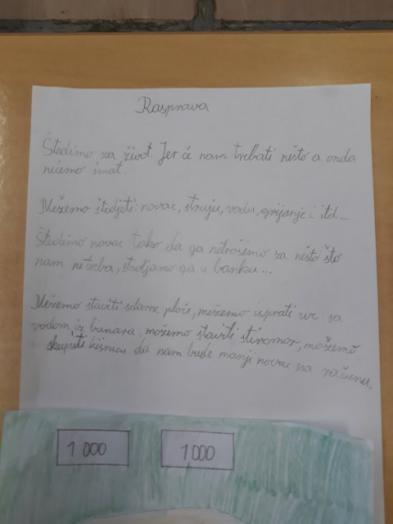 Rasprava
Štedimo za život. Jer će nam trebati nešto a onda
nećemo imat.
Možemo štedjeti: novac, struju, vodu, grijanje i itd...
Štedimo novac tako da ga netrošimo za nešto što
nam netreba, stavljamo ga u banku...
Možemo staviti solarne ploče, možemo isprati wc sa
vodom iz bunara, možemo staviti stiropor, možemo
skupiti kišnicu da nam bude manji novac na računu.
1 000
1 000